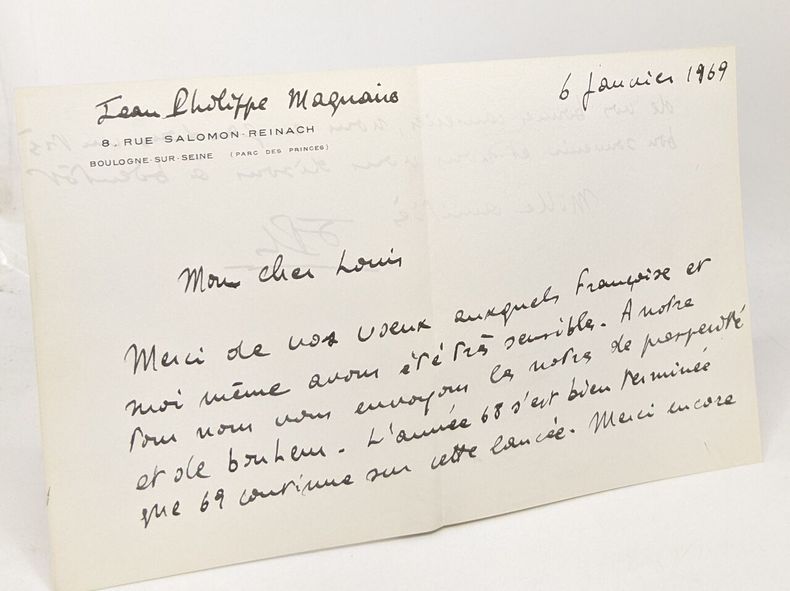 Jean Philippe Magnaire
6 janvier 1969
8. RUE SALOMON-REINACH
BOULOGNE-SUR-SEINE (PARC DES PRINCES)
Mon cher Louis
Merci de vos voeux auxquels Françoise et
moi même avons été très sensibles. A notre
tour nous vous envoyons les notres de prosperité
et de bonheur. L'année 68 s'est bien terminée
que 69 continue sur cette lancée. Merci encore
Mille amitiés